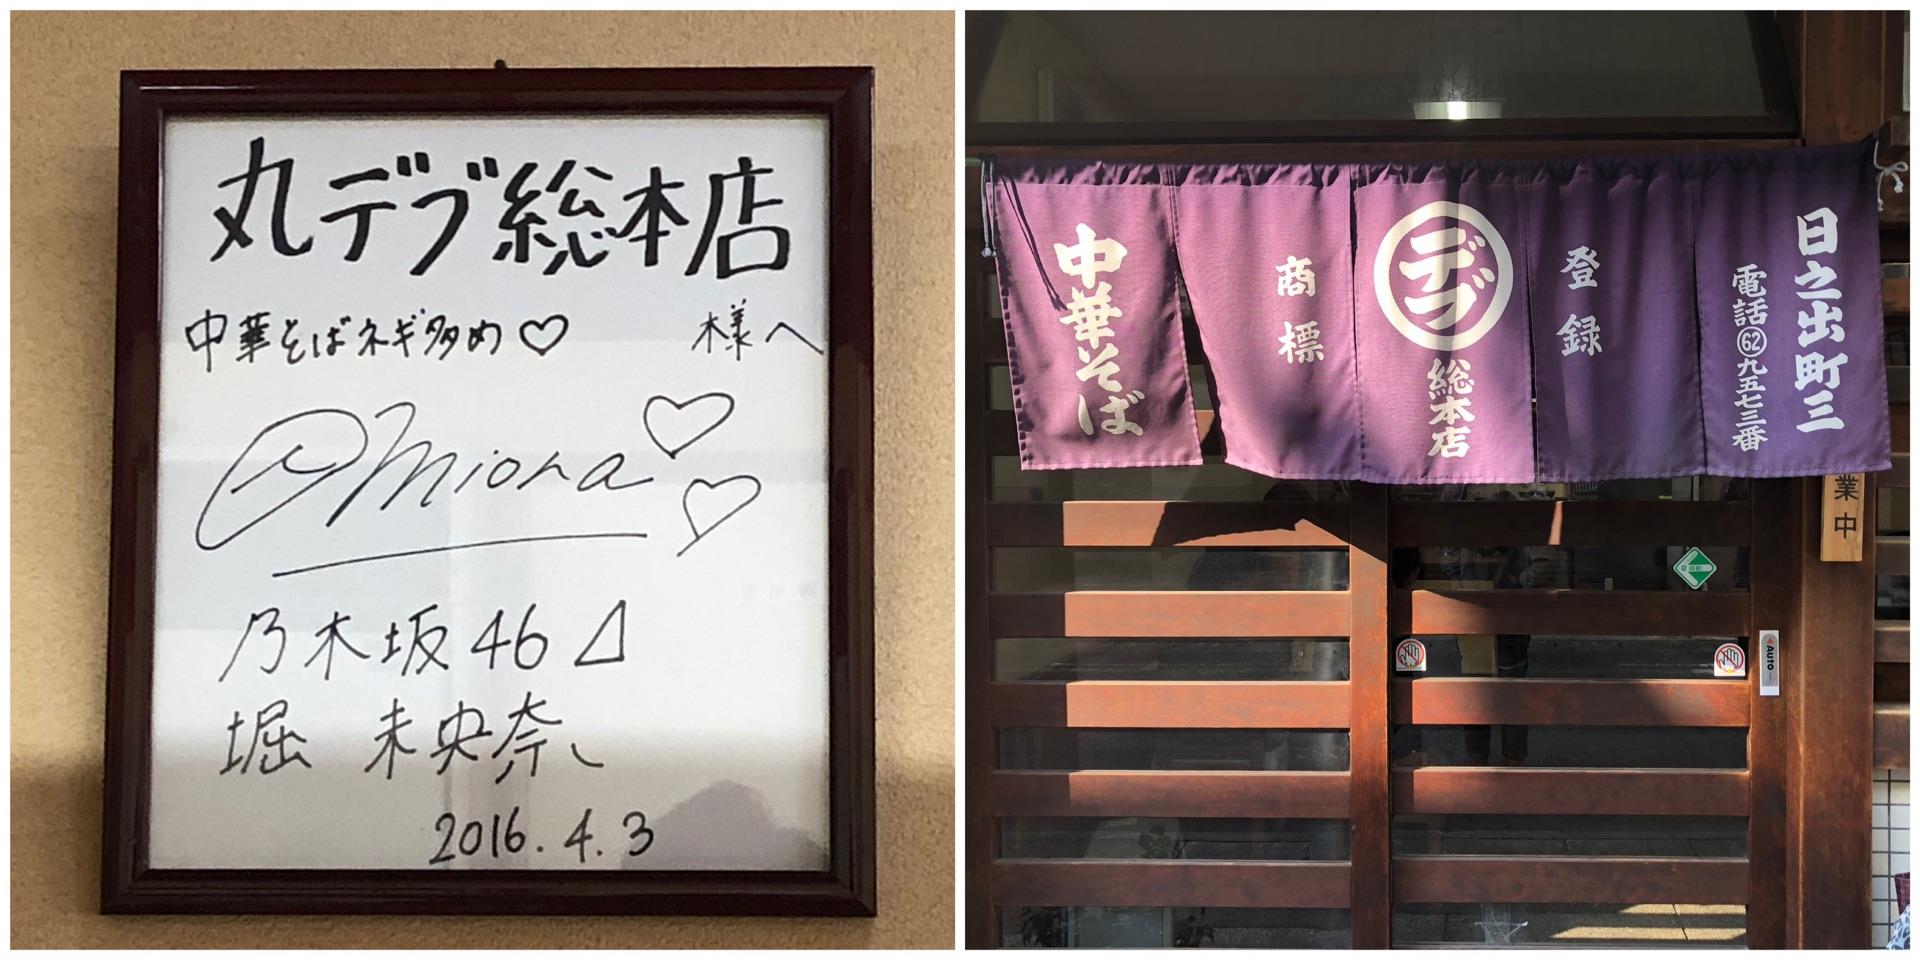 丸デブ総本店
中華そばネギ多め♡ 様へ
Miona
乃木坂46
堀 未央奈
2016.4.3
日之出町三
電話62九五七三番
登録
デブ
総本店
商標
中華そば
業中
Auto